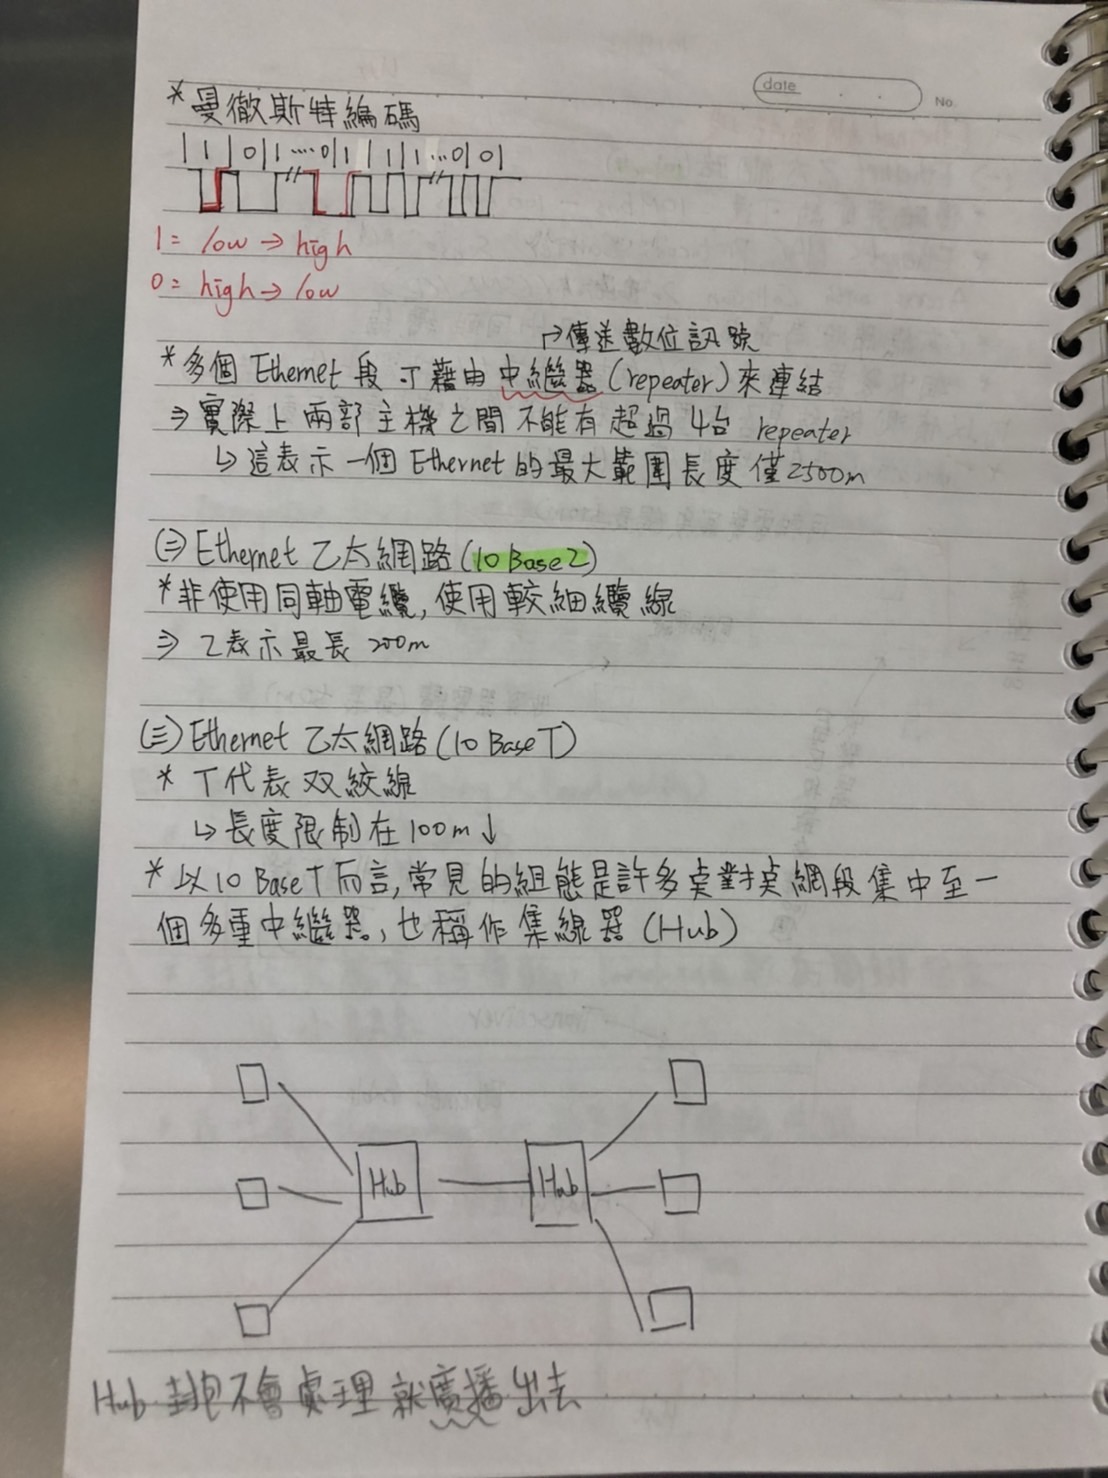 date
No.
*曼徹斯特編碼
|1|0|1····0|1|1|1···0|0|
1= low→high
0= high→low
↱傳送數位訊號
*多個 Ethernet 段可藉由中繼器(repeater)來連結
⇒實際上兩部主機之間不能有超過4台 repeater
↳這表示一個Ethernet的最大範圍長度僅2500m
(二)Ethernet 乙太網路(10 Base2)
*非使用同軸電纜,使用較細纜線
⇒ 2表示最長 200m
(三)Ethernet 乙太網路(10 BaseT)
* T代表双絞線
↳長度限制在100m↓
*以10 BaseT而言,常見的組態是許多桌對桌網段集中至一
個多重中繼器,也稱作集線器(Hub)
Hub
Hub
Hub 封包不會處理就廣播出去